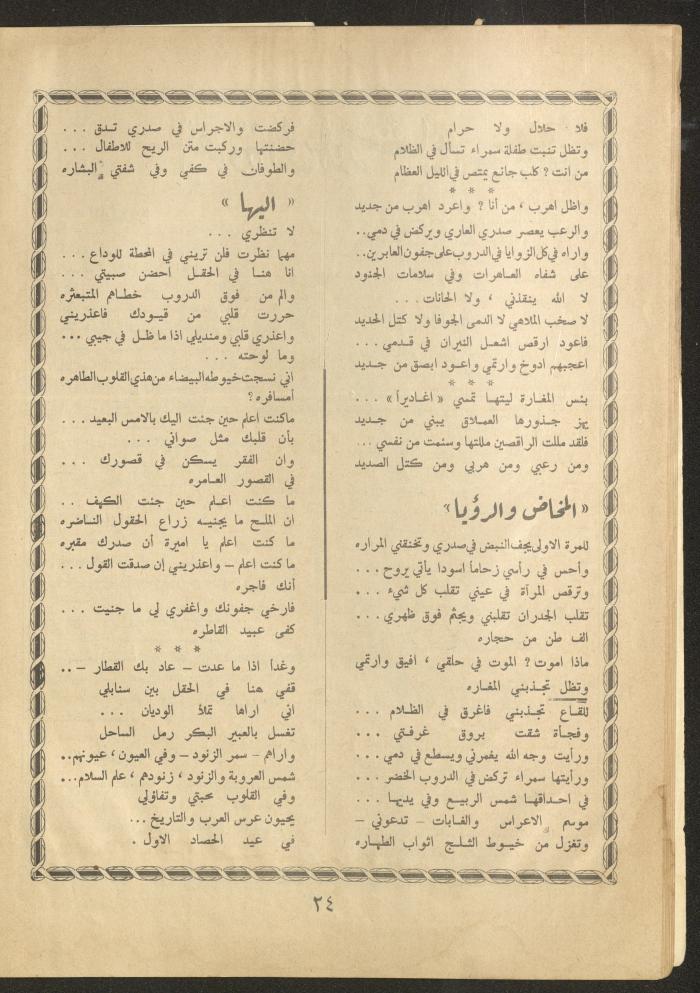 فلا حلال ولا حرام
وتظل تنبت طفلة سمراء تسأل في الظلام
من انت ? كلب جائع يمتص في الليل العظام
* * *
واظل اهرب ، من أنا ? واعود اهرب من جديد
والرعب يعصر صدري العاري ويركض في دمي..
واراه في كل الزوايا في الدروب على جفون العابرين..
على شفاه العاهرات وفي سلامات الجنود
لا الله ينقذني ، ولا الحانات . . .
لا صخب الملاهي لا الدمى الجوفا ولا كتل الحديد
فاعود ارقص اشعل النيران في قدمي . . .
اعجبهم ادوخ وارتمي واعود ابصق من جديد
* * *
بئس المغارة ليتها تمسي « اغاديراً » . . .
يهز جذورها العملاق يبني من جديد
فلقد مللت الراقصين مللتها وسئمت من نفسي . . .
ومن رعبي ومن هربي ومن كتل الصديد
« المخاض والرؤيا »
للمرة الاولى يجف النبض في صدري وتخنقني المراره
وأحس في رأسي زحاماً اسودا يأتي يروح . . .
وترقص المرأة في عيني تقلب كل شيء . . .
تقلب الجدران تقلبني ويجثم فوق ظهري . . .
الف طن من حجاره
ماذا اموت ? الموت في حلقي ، افيق وارتمي
وتظل تجذبني المغاره
للقاع تجذبني فاغرق في الظلام . . .
وفجأة شقت بروق غرفتي . . .
ورأيت وجه الله يغمرني ويسطع في دمي . . .
ورأيتها سمراء تركض في الدروب الخضر . . .
في احداقها شمس الربيع وفي يديها . . .
موسم الاعراس والغابات – تدعوني –
وتغزل من خيوط الثلج اثواب الطهاره
فركضت والاجراس في صدري تدق . . .
حضنتها وركبت متن الريح للاطفال . . .
والطوفان في كفي وفي شفتي البشاره
« اليها »
لا تنظري . . .
مهما نظرت فلن تريني في المحطة للوداع . . .
انا هنا في الحقل احضن صبيتي . . .
والم من فوق الدروب خطاهم المتبعثره
حررت قلبي من قيودك فاعذريني
واعذري قلبي ومنديلي اذا ما ظل في جيبي . . .
وما لوحته . . .
اني نسجت خيوطه البيضاء من هذي القلوب الطاهره
أمسافره ?
ما كنت اعلم حين جئت اليك بالامس البعيد . . .
بأن قلبك مثل صواني . . .
وان الفقر يسكن في قصورك . . .
في القصور العامره
ما كنت اعلم حين جئت الكهف . .
ان الملح ما يجنيه زراع الحقول الناضره
ما كنت اعلم يا اميرة أن صدرك مقبره
ما كنت اعلم – واعذريني إن صدقت القول . . .
أنك فاجره
فارخي جفونك واغفري لي ما جنيت . . .
كفى عبيد القاطره
* * *
وغداً اذا ما عدت – عاد بك القطار – . .
قفي هنا في الحقل بين سنابلي
اني اراها تملأ الوديان . . .
تغسل بالعبير البكر رمل الساحل
واراهم – سمر الزنود – وفي العيون ، عيونهم..
شمس العروبة والزنود ، زنودهم ، علم السلام...
وفي القلوب محبتي وتفاؤلي
يحيون عرس العرب والتاريخ . . .
في عيد الحصاد الاول .
٢٤